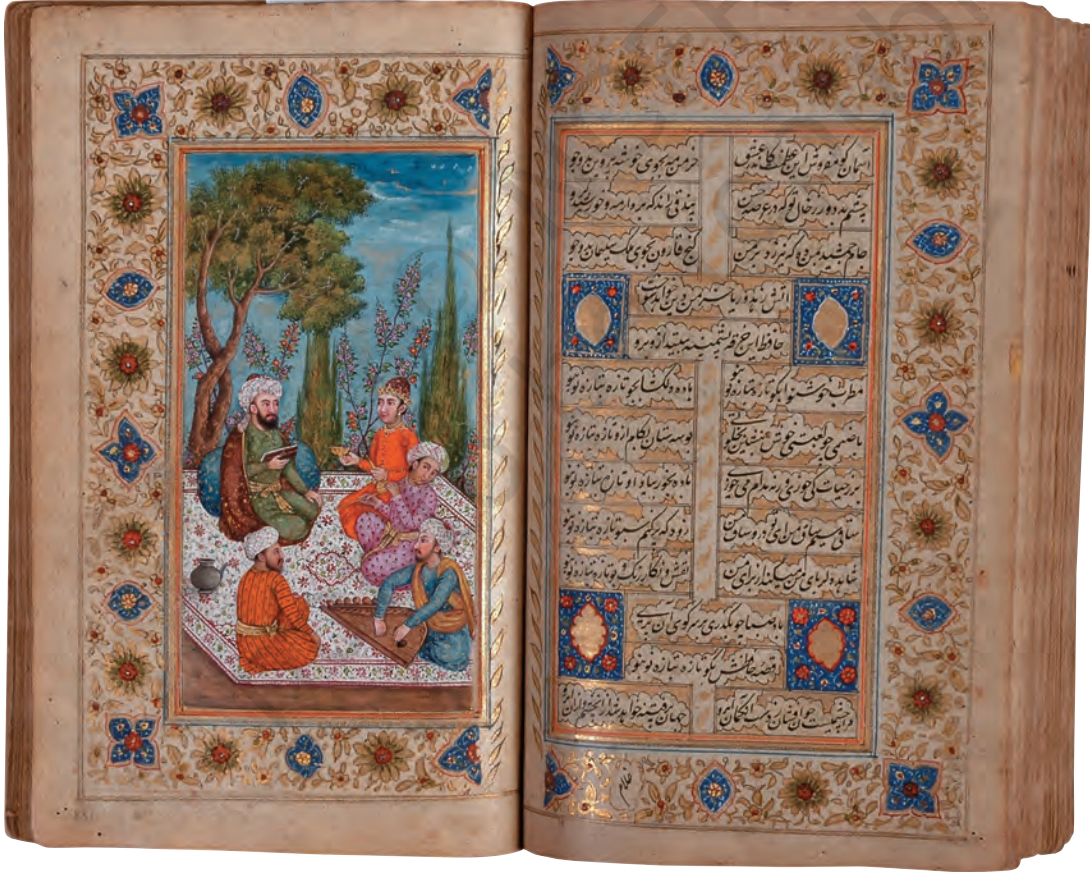 آسمان گو مفروش این عظمت کاندر عشق خرمن مه بجوی خوشه پروین بدو جو
چشم بد دور ز خال تو که در عرصه حسن بیدقی راند که برد از مه و خورشید گرو
جام جمشید بمن ده که نیرزد بر من گنج قارون بجوی ملک سلیمان بدو جو
آتش زهد و ریا خرمن دین خواهد سوخت
حافظ این خرقه پشمینه بینداز و برو
مطرب خوش نوا بگو تازه بتازه نو بنو باده دلگشا بجو تازه بتازه نو بنو
با صنمی چو لعبتی خوش بنشین بخلوتی بوسه ستان بکام ازو تازه بتازه نو بنو
بر ز حیات کی خوری گر نه مدام می خوری باده بخور بیاد او تازه بتازه نو بنو
ساقی سیم ساق من زود که پر کنم سبو تازه بتازه نو بنو
شاهد دلربای من میکند از برای من نقش و نگار و رنگ و بو تازه بتازه نو بنو
باد صبا چو بگذری بر سر کوی آن پری
قصه حافظش بگو تازه بتازه نو بنو
مرا چشمیست خون افشان ز دست آن کمان ابرو جهان پر فتنه خواهد شد از آن چشم و از آن ابرو
غلام